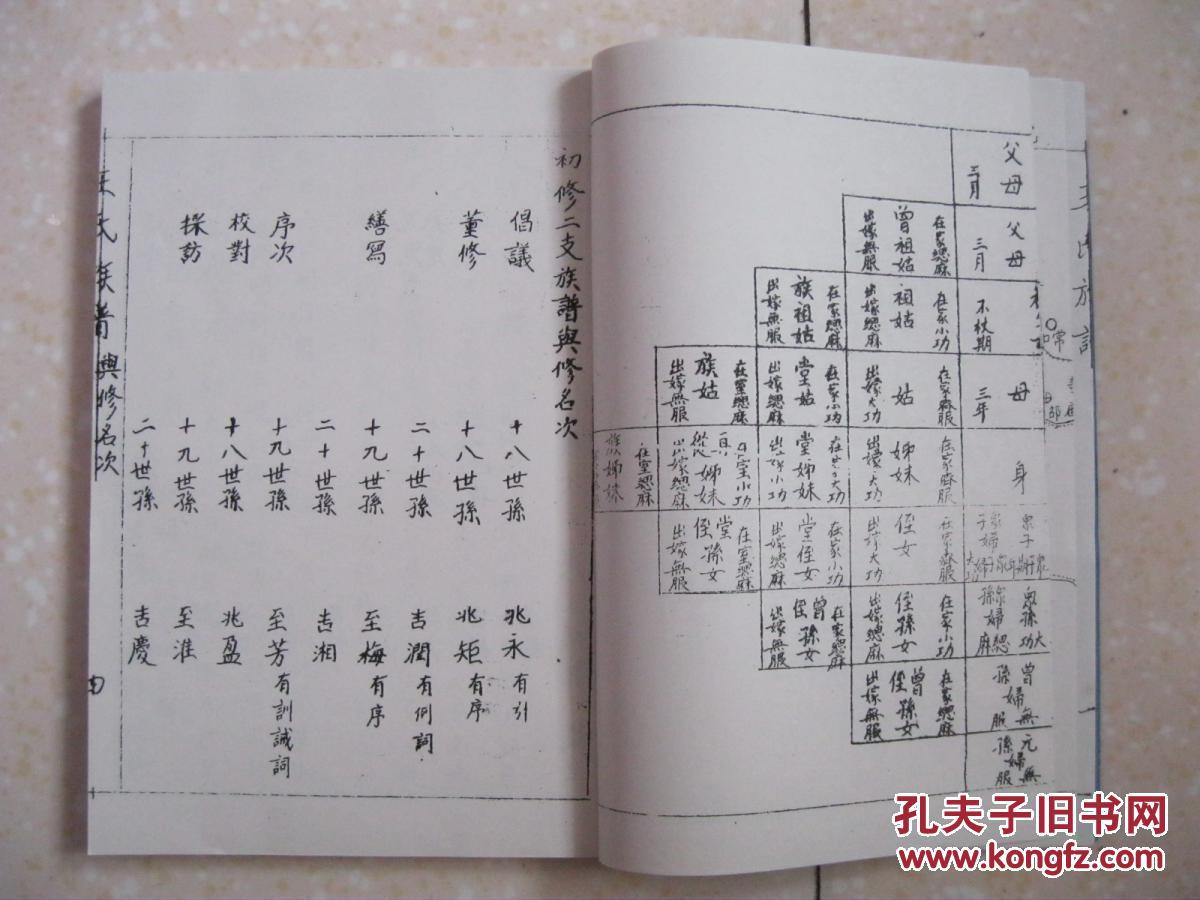 初修二支族譜與修名次
倡議 十八世孫 兆永有引
董修 十八世孫 兆矩有序
二十世孫 吉潤有例詞
繕寫 十九世孫 至梅有序
二十世孫 吉湘
序次 十九世孫 至芳有訓誡詞
校對 十八世孫 兆盈
採訪 十九世孫 至淮
二十世孫 吉慶
氏族譜 與修名次
父母 三月
父母 三月
不杖期
母 三年
身
在家緦麻 曾祖姑 出嫁無服
在家小功 祖姑 出嫁緦麻
在家緦麻 族祖姑 出嫁無服
在家齊服 姑 出嫁大功
在家小功 堂姑 出嫁緦麻
在室緦麻 族姑 出嫁無服
在家齊服 姊妹 出嫁大功
堂姊妹 出嫁小功
從姊妹 出嫁緦麻
在室緦麻 族姊妹
在家齊服 侄女 大功
在家小功 堂侄女 出嫁緦麻
在室緦麻 堂侄孫女 出嫁無服
在家小功 侄孫女 出嫁緦麻
在家緦麻 曾侄孫女 出嫁無服
在家緦麻 曾侄孫女 出嫁無服
曾孫婦無服
元孫婦無服
孔夫子旧书网
www.kongfz.com